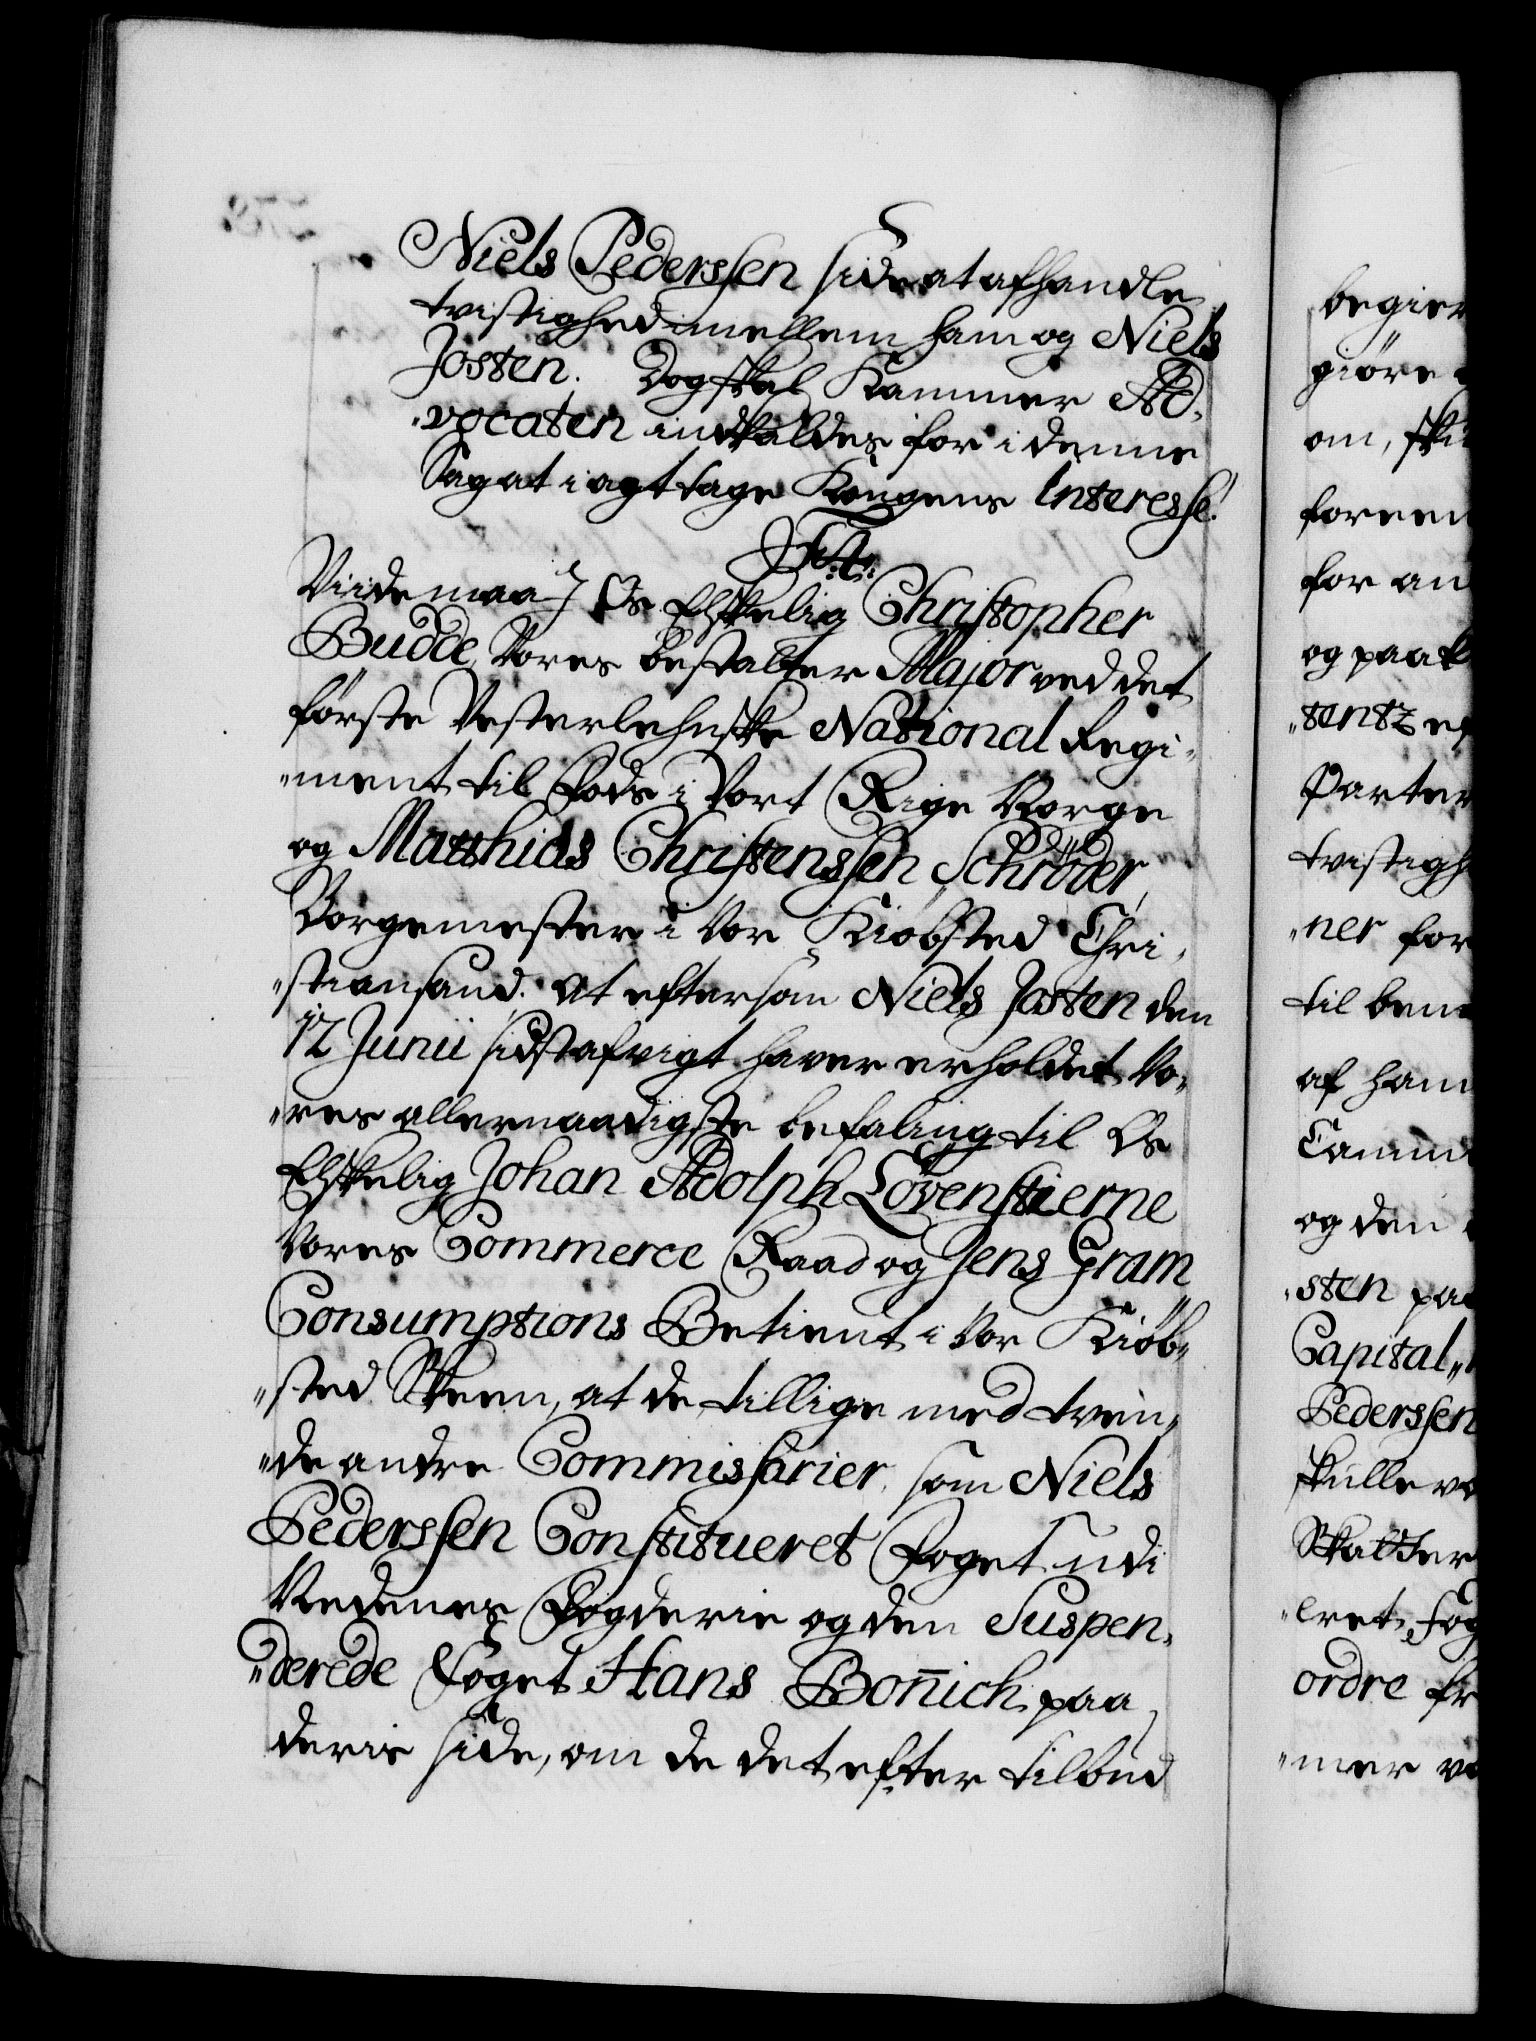 Niels Pederssen side at afhandle
tvistighed imellem ham og Niels
Josten. Dog skal Kammer Ad-
"vocaten indkaldes for i denne
Sag at iagttage Kongens Interesse.
Viide maa I Os Elskelig Christopher
Budde, Vores bestalter Major ved det
förste Vesterlehnske National Regi-
"ment til Fods i Vort Rige Norge
og Matthias Christenssen Schrøder,
Borgemester i Vor Kiöbsted Chri-
"stiansand. At eftersom Niels Josten den
12 Junii sidst afvigt haver erholdet Vo-
"res allernaadigste befaling til Os
Elskelig Johan Adolph Lövenstierne
Vores Commerce Raad og Jens Gram
Consumptions Betient i Vor Kiöb-
"sted Skeen, at de tillige med tven-
"de andre Commissarier, som Niels
Pederssen Constitueret Foget udi
Nedenes Fogderie og den Suspen-
"derede Foget Hans Bon̄ich paa
deris side, om de det efter tilbud
begier
giöre
om, sku
foreen
for an
og paak
"tentz ef
Parter
tvistigh
"ner for
til bem
af ham
og den
"sten paa
Capital
Pederssen
skulle væ
Skatter
"eret Fog
ordre fr
"mer væ